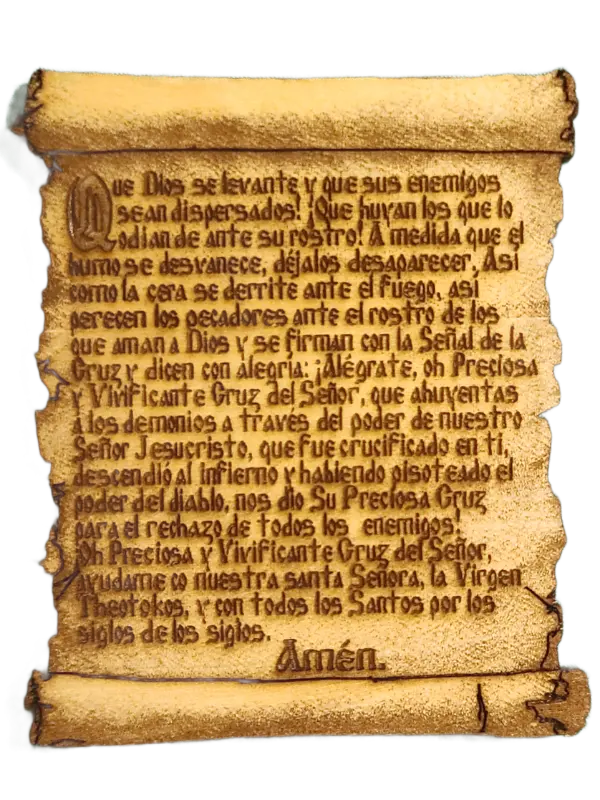 Que Dios se levante y que sus enemigos
sean dispersados! ¡Que huyan los que lo
odian de ante su rostro! A medida que el
humo se desvanece, déjalos desaparecer. Así
como la cera se derrite ante el fuego, así
perecen los pecadores ante el rostro de los
que aman a Dios y se firman con la Señal de la
Cruz y dicen con alegría: ¡Alégrate, oh Preciosa
y Vivificante Cruz del Señor, que ahuyentas
a los demonios a través del poder de nuestro
Señor Jesucristo, que fue crucificado en ti,
descendió al infierno y habiendo pisoteado el
poder del diablo, nos dio Su Preciosa Cruz
para el rechazo de todos los enemigos!
Oh Preciosa y Vivificante Cruz del Señor,
ayudame co nuestra santa Señora, la Virgen
Theotokos, y con todos los Santos por los
siglos de los siglos.
Amén.